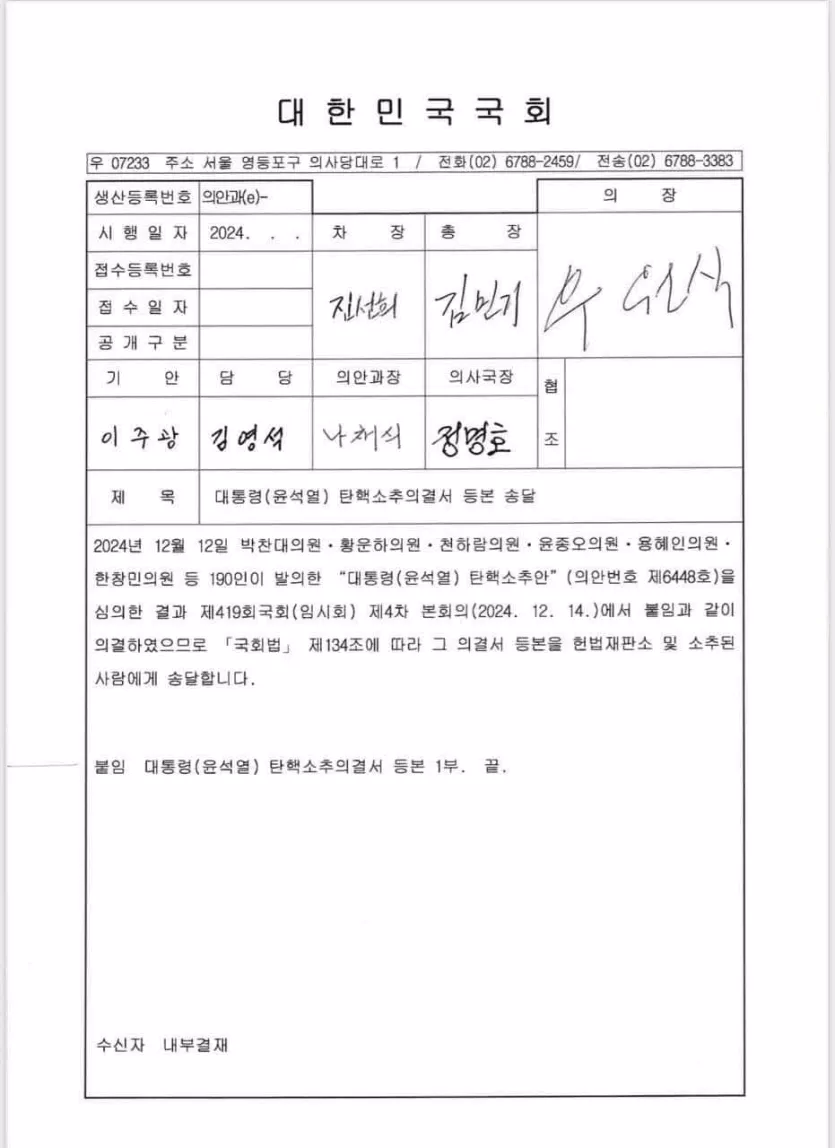 대한민국국회
우 07233 주소 서울 영등포구 의사당대로 1 / 전화(02) 6788-2459/ 전송(02) 6788-3383
생산등록번호 의안과(e)- 의 장
시행일자 2024. . . 차 장 총 장
접수등록번호
접수일자 진선희 김민기 우원식
공개구분
기 안 담 당 의안과장 의사국장 협조
이주광 김영석 나채식 정명호
제 목 대통령(윤석열) 탄핵소추의결서 등본 송달
2024년 12월 12일 박찬대의원·황운하의원·천하람의원·윤종오의원·용혜인의원·
한창민의원 등 190인이 발의한 “대통령(윤석열) 탄핵소추안”(의안번호 제6448호)을
심의한 결과 제419회국회(임시회) 제4차 본회의(2024. 12. 14.)에서 붙임과 같이
의결하였으므로 「국회법」 제134조에 따라 그 의결서 등본을 헌법재판소 및 소추된
사람에게 송달합니다.
붙임 대통령(윤석열) 탄핵소추의결서 등본 1부. 끝.
수신자 내부결재